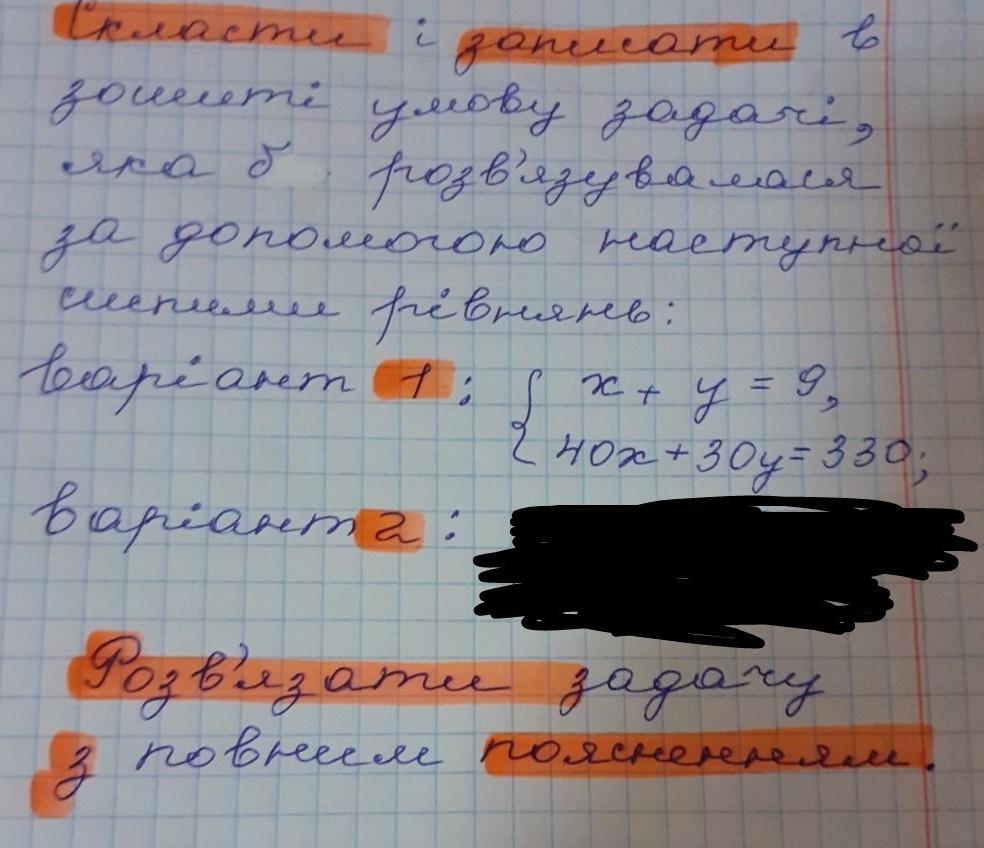 Скласти і записати в
зошиті умову задачі,
яка б розв'язувалася
за допомогою наступної
системи рівнянь:
варіант 1: { x + y = 9,
40x + 30y = 330;
варіант 2:
Розв'язати задачу
з повним поясненням.